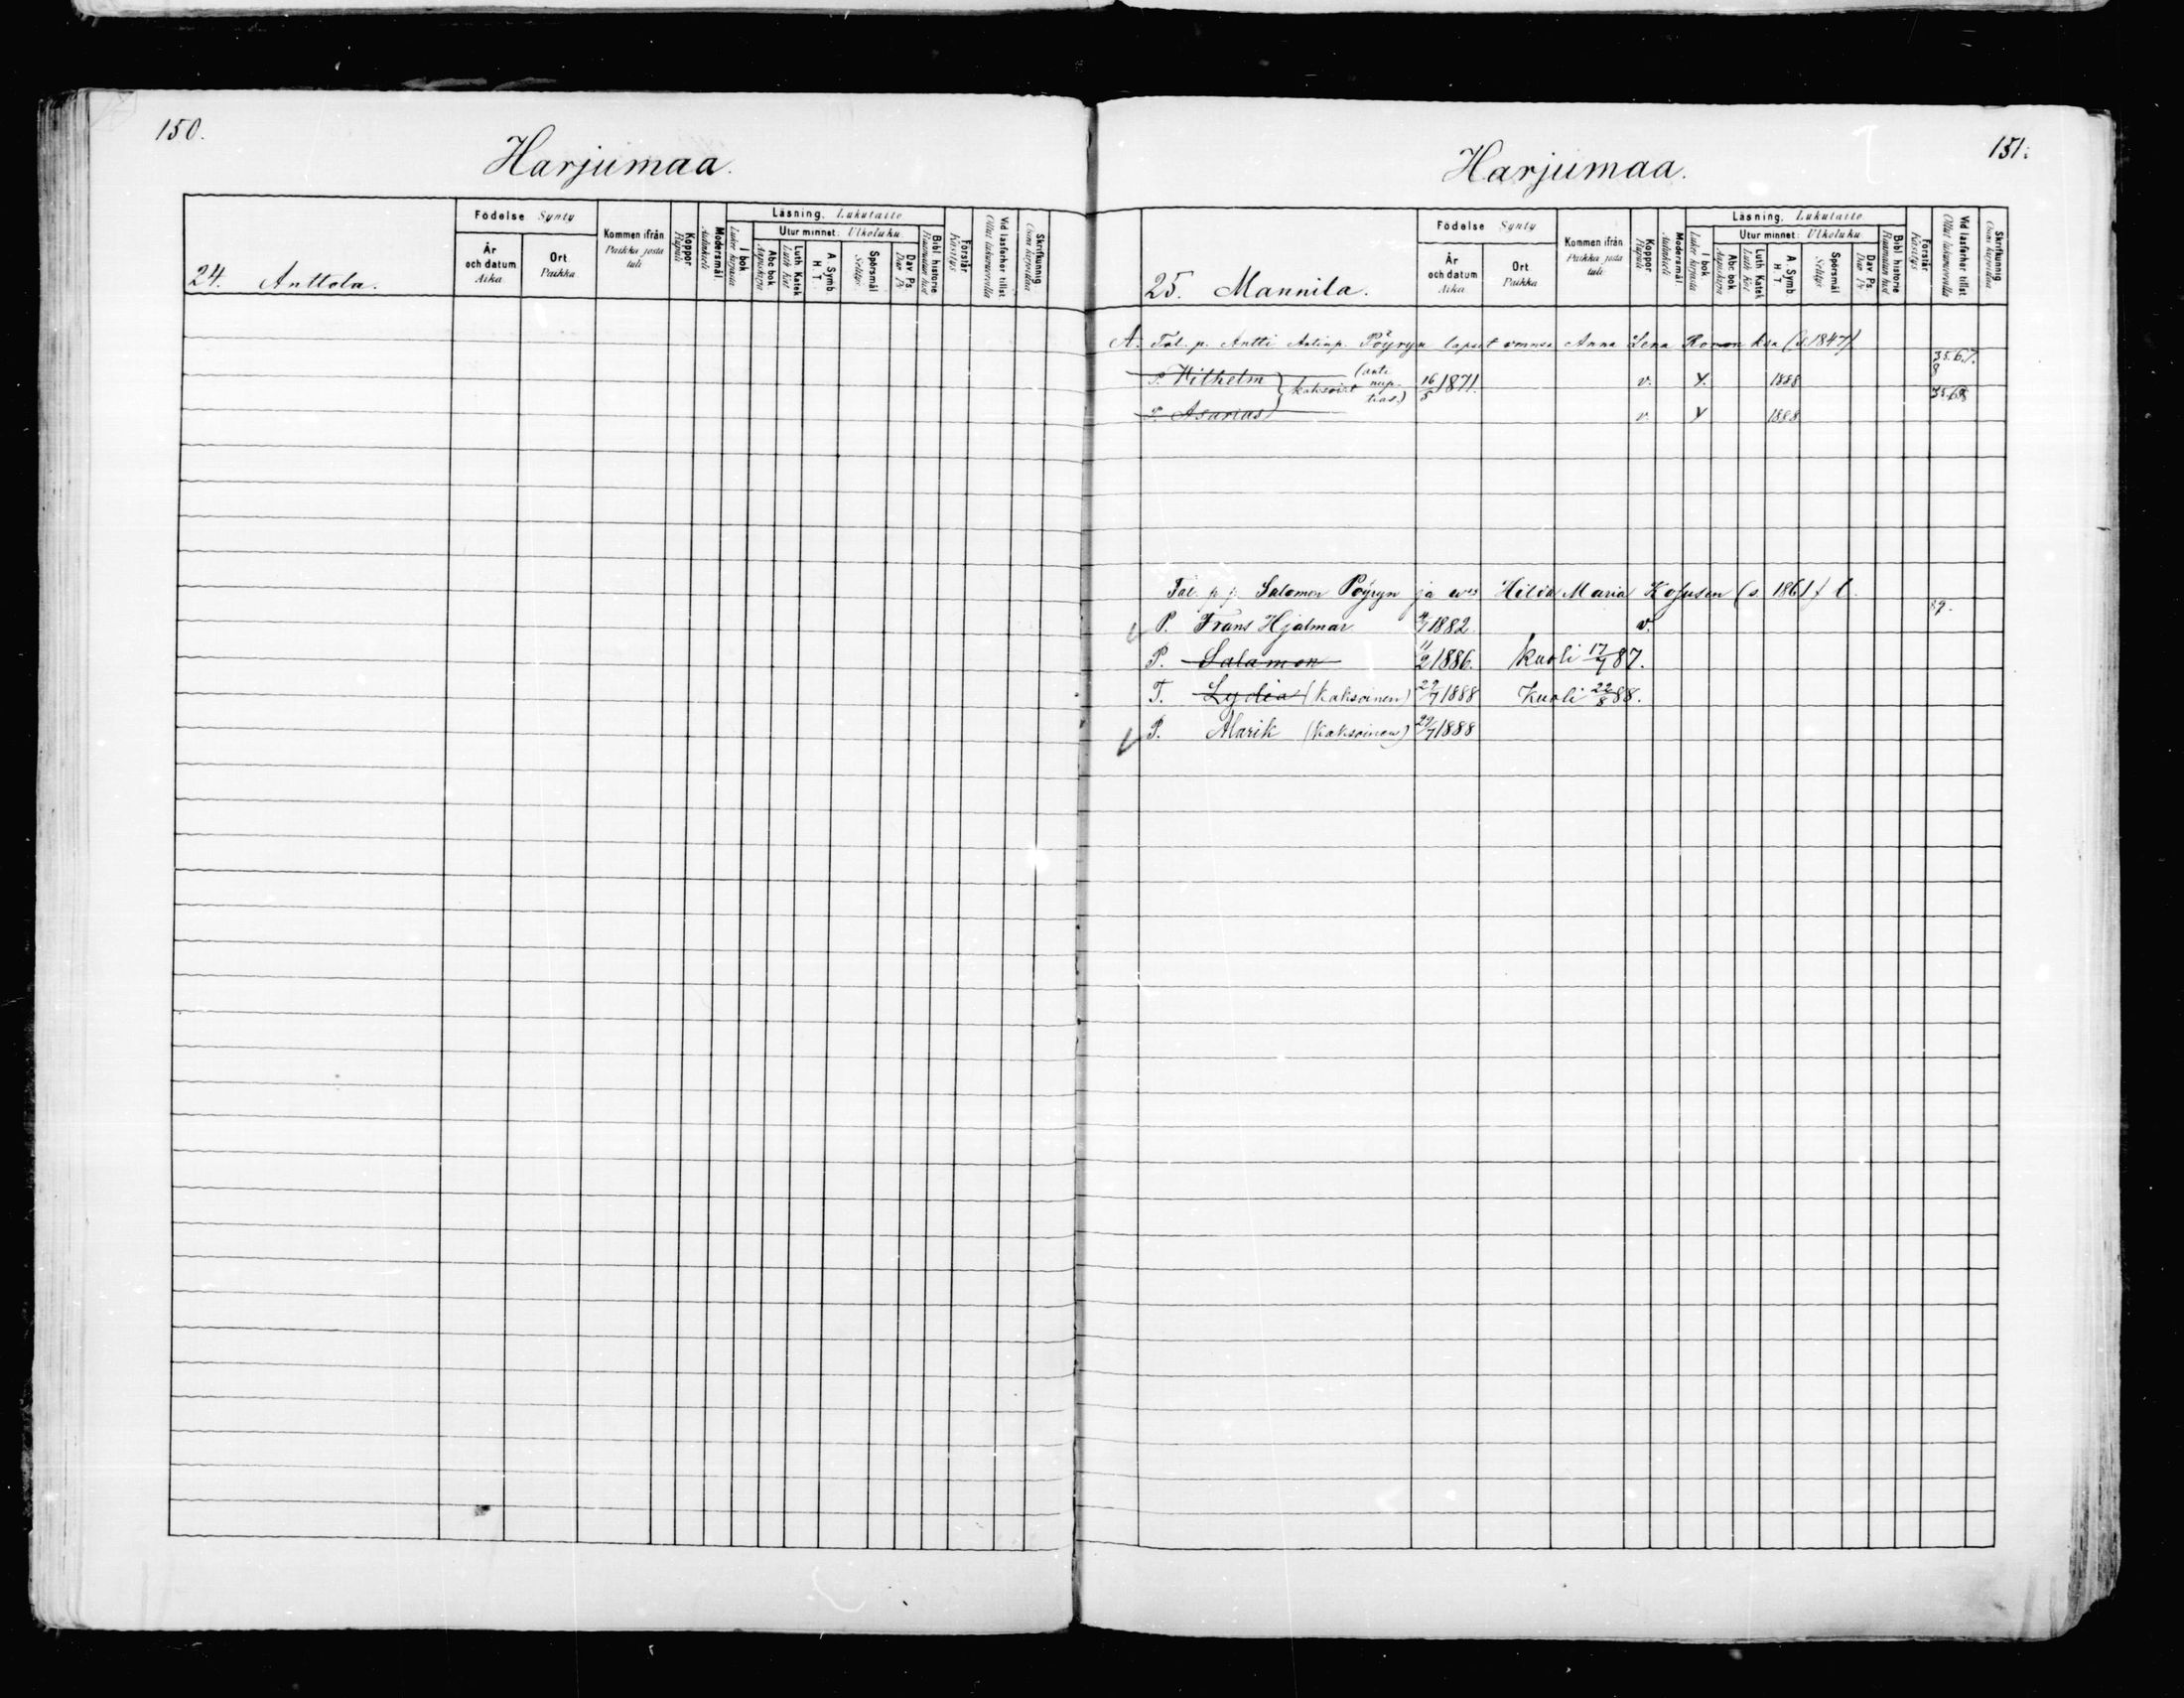 150.
Harjumaa.
Födelse Synty
Kommen ifrån Paikka josta tuli
Koppor Rupuli
Modersmål. Äidinkieli
Läsning. Lukutaito
I bok Lukee kirjasta
Utur minnet: Ulkoluku
Abc bok Aapiskirja
Luth. Katek Luth. Kat.
A. Symb. H. T.
Spörsmål Selitys
Dav. Ps Dav. Ps.
Bibl. historie Raamatun hist
Förstår Käsitys
Vid läsförhör tillst Ollut lukuvuorolla
Skrifkunnig Osaa kirjoittaa
År och datum Aika
Ort Paikka
24. Anttola.
151.
Harjumaa.
Födelse Synty
Kommen ifrån Paikka josta tuli
Koppor Rupuli
Modersmål Äidinkieli
Läsning. Lukutaito
I bok Lukee kirjasta
Utur minnet: Ulkoluku
Abc bok Aapiskirja
Luth. Katek Luth. Kat
A. Symb H. T.
Spörsmål Selitys
Dav. Ps Dav. Ps.
Bibl. historie Raamatun hist
Förstår Käsitys
Vid läsförhör tillst Ollut lukuvuorolla
Skrifkunnig Osaa kirjoittaa
År och datum Aika
Ort Paikka
25. Mannila.
A. Tal. p. Antti Antinp. Pöyryn lapset Anna Lena ksa (s. 1847)
P. Wilhelm } kaksoist (ante nup- tias.) 16/5 1871. v. Y. 1888
P. Asarias v. Y 1888
Tal. p. p. Salomon Pöyryn ja Hilda Maria Kosusen (s. 1861) l. 89.
P. Frans Hjalmar 1882. v.
P. Salamon 11/2 1886. kuoli 17/7 87.
T. Lydia (kaksoinen) 29/7 1888 Kuoli 22/8 88.
P. Marik (kaksoinen) 29/7 1888